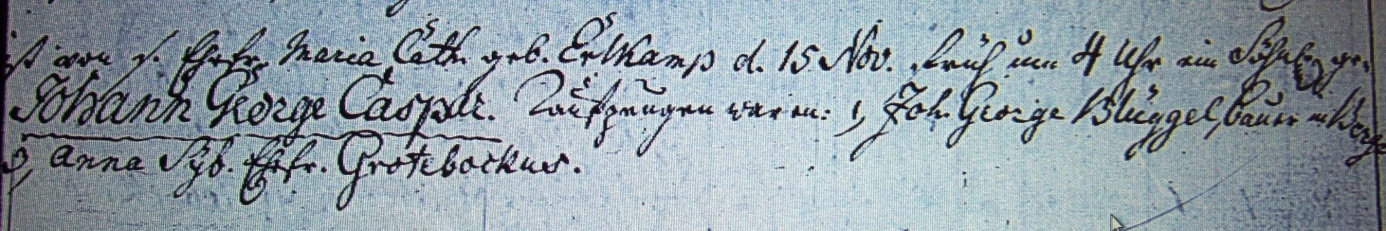 ist von s. Ehefr. Maria Cath. geb. Erlkamp d. 15 Nov. früh um 4 Uhr ein Söhnl. ge.
Johann George Caspar. Taufzeugen waren: 1, Joh. George Blüggel, Bauer in Berge
2, Anna Syb. Ehefr. Grotebockus.